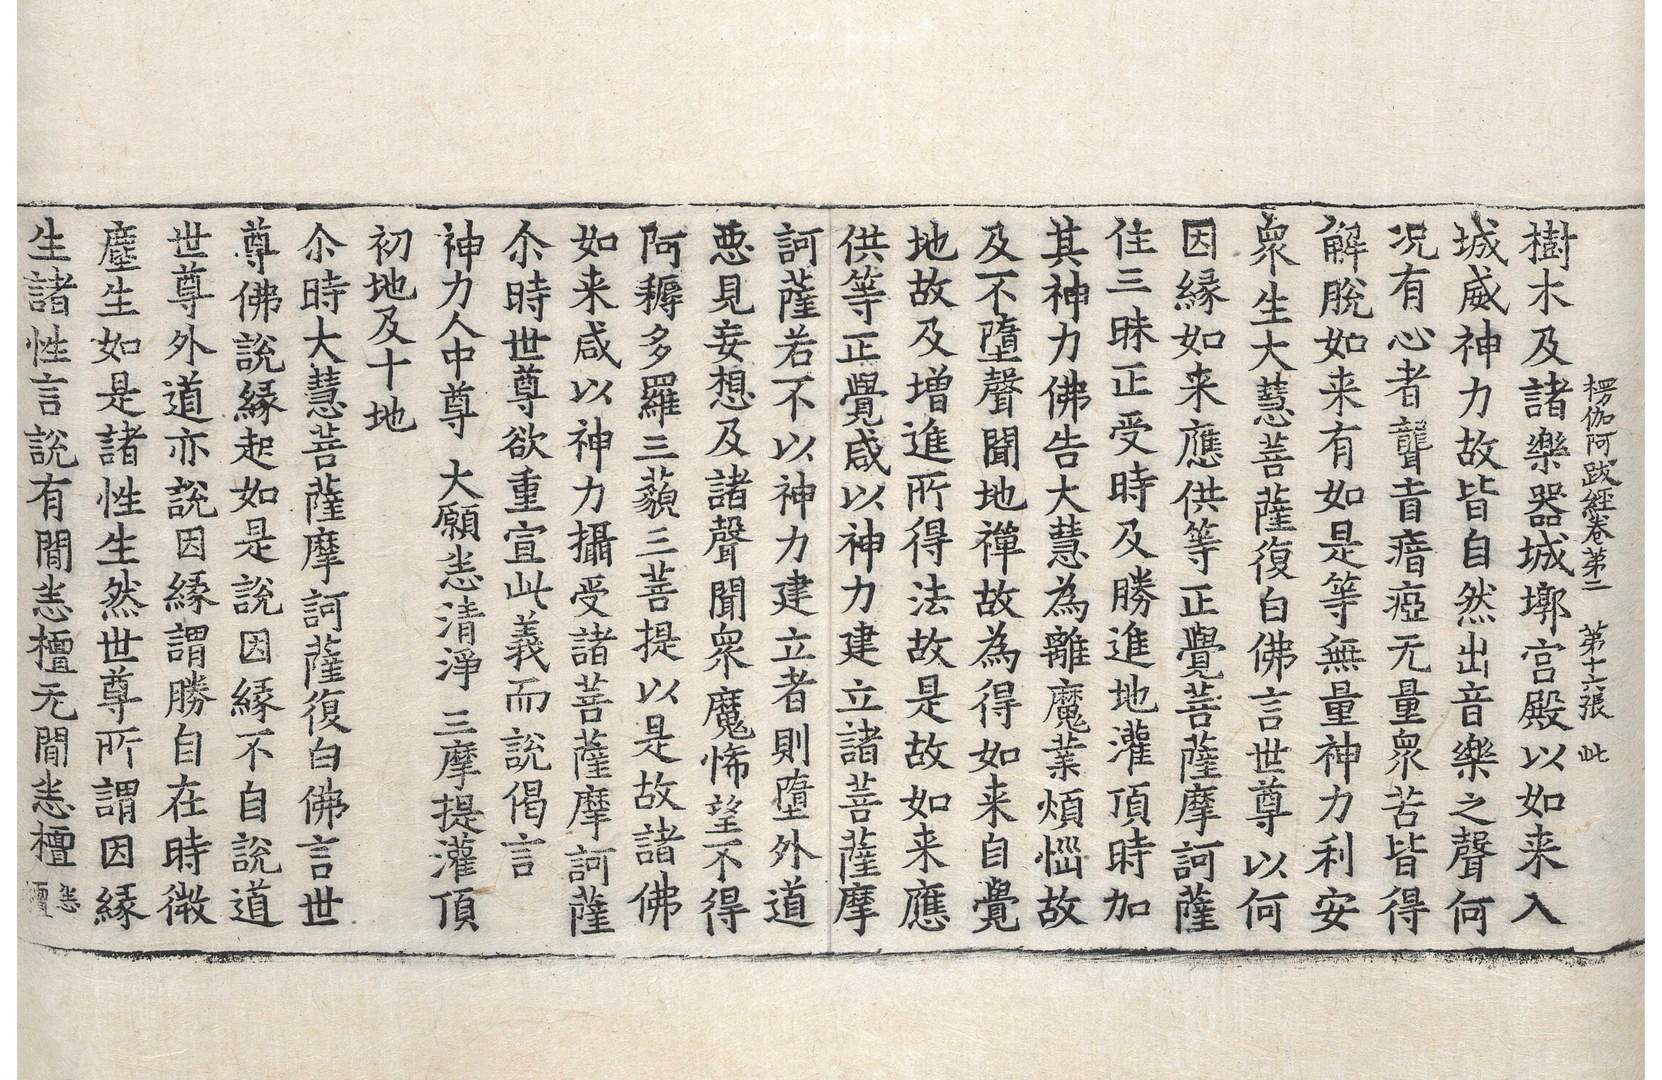 楞伽阿跋經卷第二 第十六張 此
樹木及諸樂器城墎宮殿以如来入
城威神力故皆自然出音樂之聲何
况有心者聾盲瘖瘂无量衆苦皆得
解脫如来有如是等無量神力利安
衆生大慧菩薩復白佛言世尊以何
因緣如来應供等正覺菩薩摩訶薩
住三昧正受時及勝進地灌頂時加
其神力佛告大慧為離魔業煩惱故
及不墮聲聞地禪故為得如来自覺
地故及增進所得法故是故如来應
供等正覺咸以神力建立諸菩薩摩
訶薩若不以神力建立者則墮外道
惡見妄想及諸聲聞衆魔悕望不得
阿耨多羅三藐三菩提以是故諸佛
如来咸以神力攝受諸菩薩摩訶薩
尒時世尊欲重宣此義而說偈言
神力人中尊 大願悉清淨 三摩提灌頂
初地及十地
尒時大慧菩薩摩訶薩復白佛言世
尊佛說緣起如是說因緣不自說道
世尊外道亦說因緣謂勝自在時微
塵生如是諸性生然世尊所謂因緣
生諸性言說有間悉檀无間悉檀悉檀